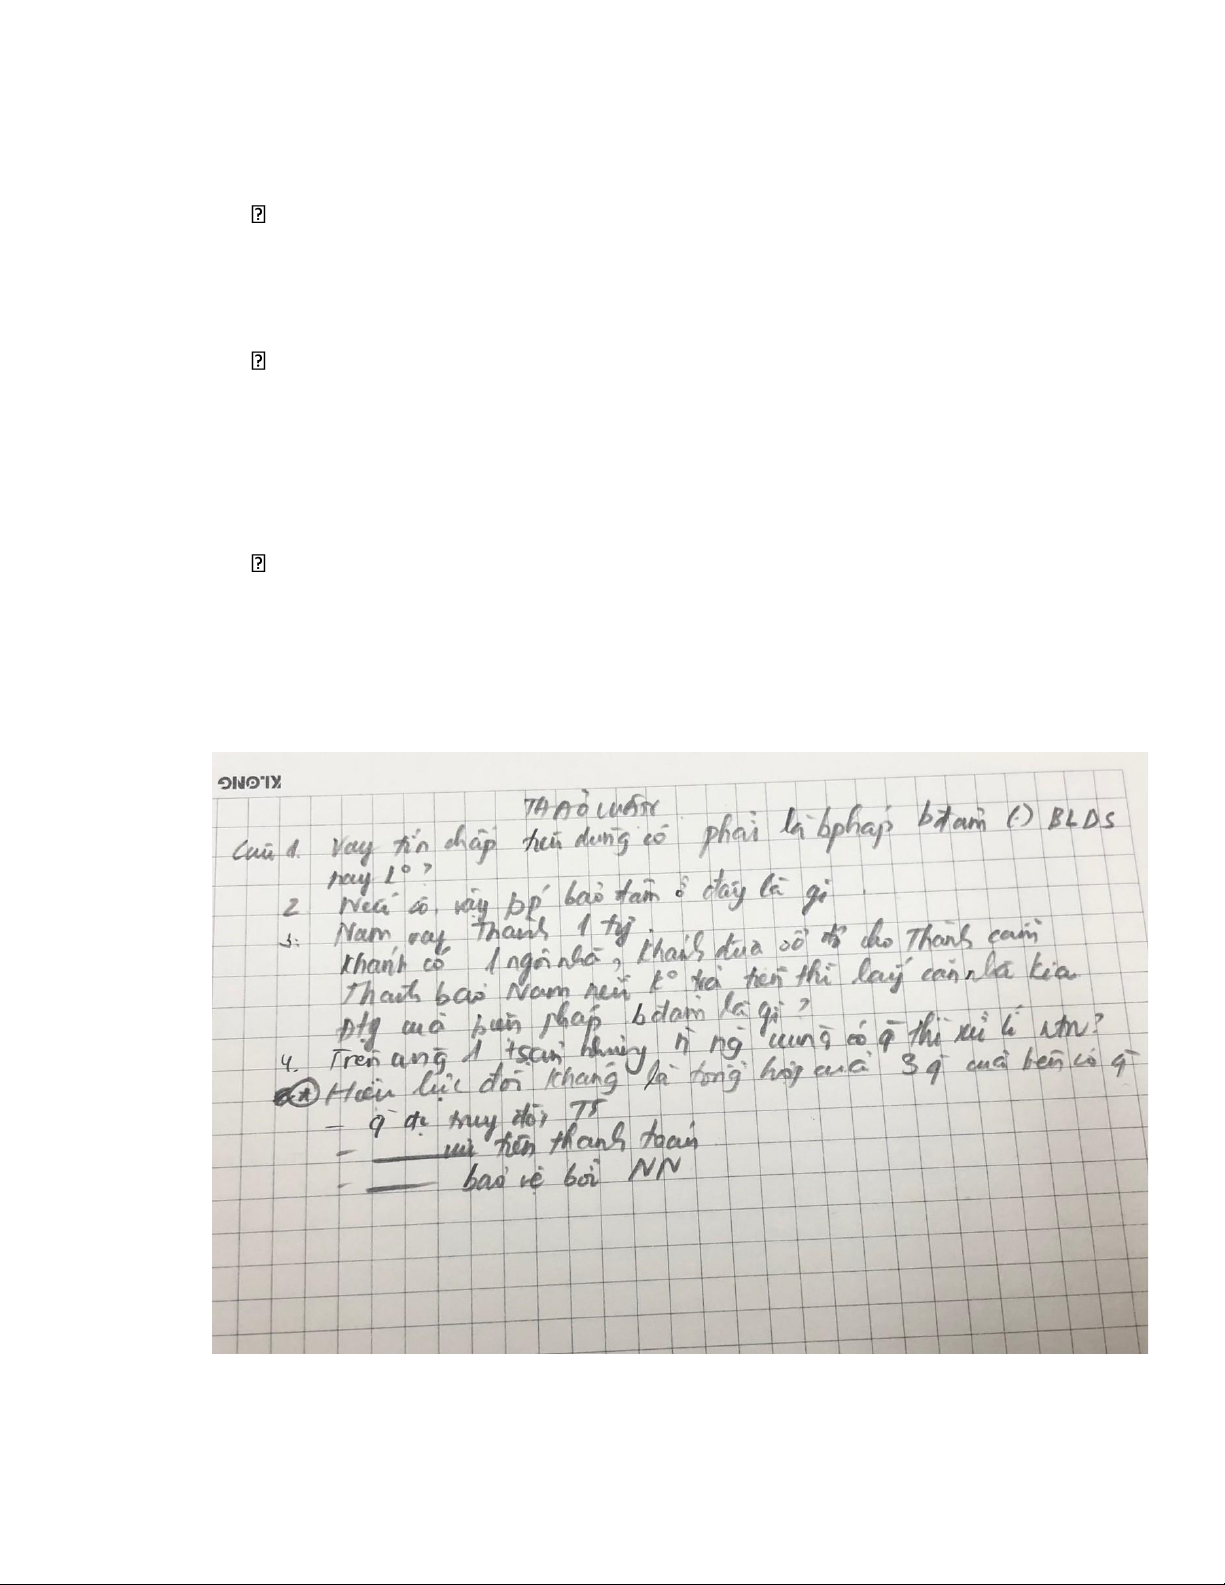 KLONG
THẢO LUẬN
Câu 1. Vay tín chấp tiêu dùng có phải là bpháp bđảm (.) BLDS
nay k°?
2 Nếu có, vậy bp bảo đảm ở đây là gì
3. Nam vay Thành 1 tỷ.
Khánh có 1 ngôi nhà, Khánh đưa sổ đỏ cho Thành cầm
Thành bảo Nam nếu k° trả tiền thì lấy căn nhà kia
Đtg của biện pháp bđảm là gì?
4. Trên cùng 1 tsản nhưng n ng cùng có q thì xử lí ntn?
* Hiệu lực đối kháng là tổng hợp của 3 q của bên có q
- q đc truy đòi TS
- ____ ưu tiên thanh toán
- ____ bảo vệ bởi NN